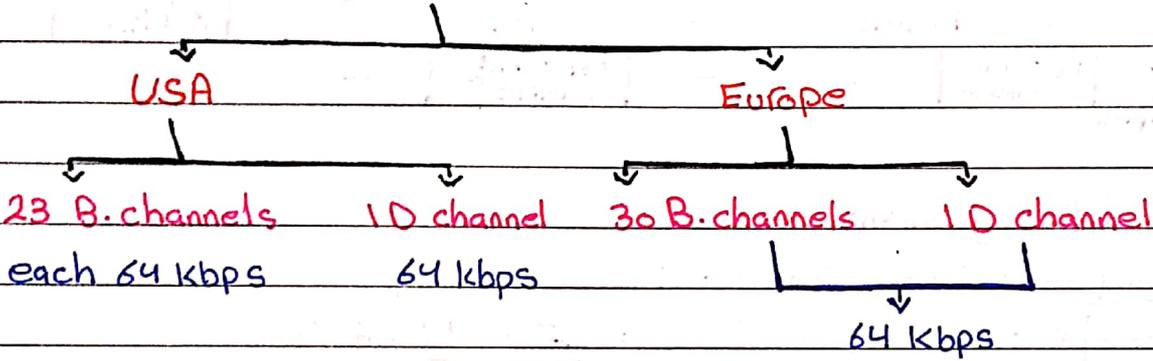 USA Europe
23 B.channels 1 D channel 30 B.channels 1 D channel
each 64 Kbps 64 kbps
64 Kbps